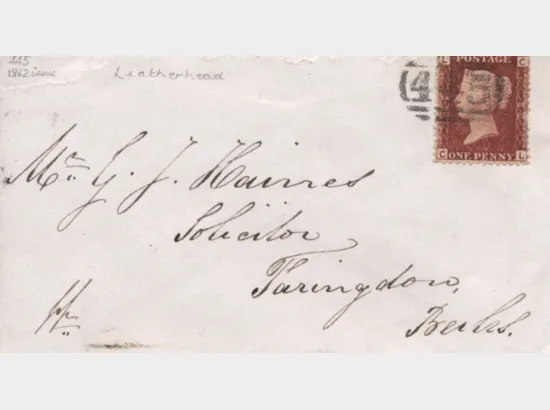 445
1862 issue
Leatherhead
L C
POSTAGE
4 5
C L
ONE PENNY
Mr. G. J. Haines
Solicitor
Faringdon,
Berks.